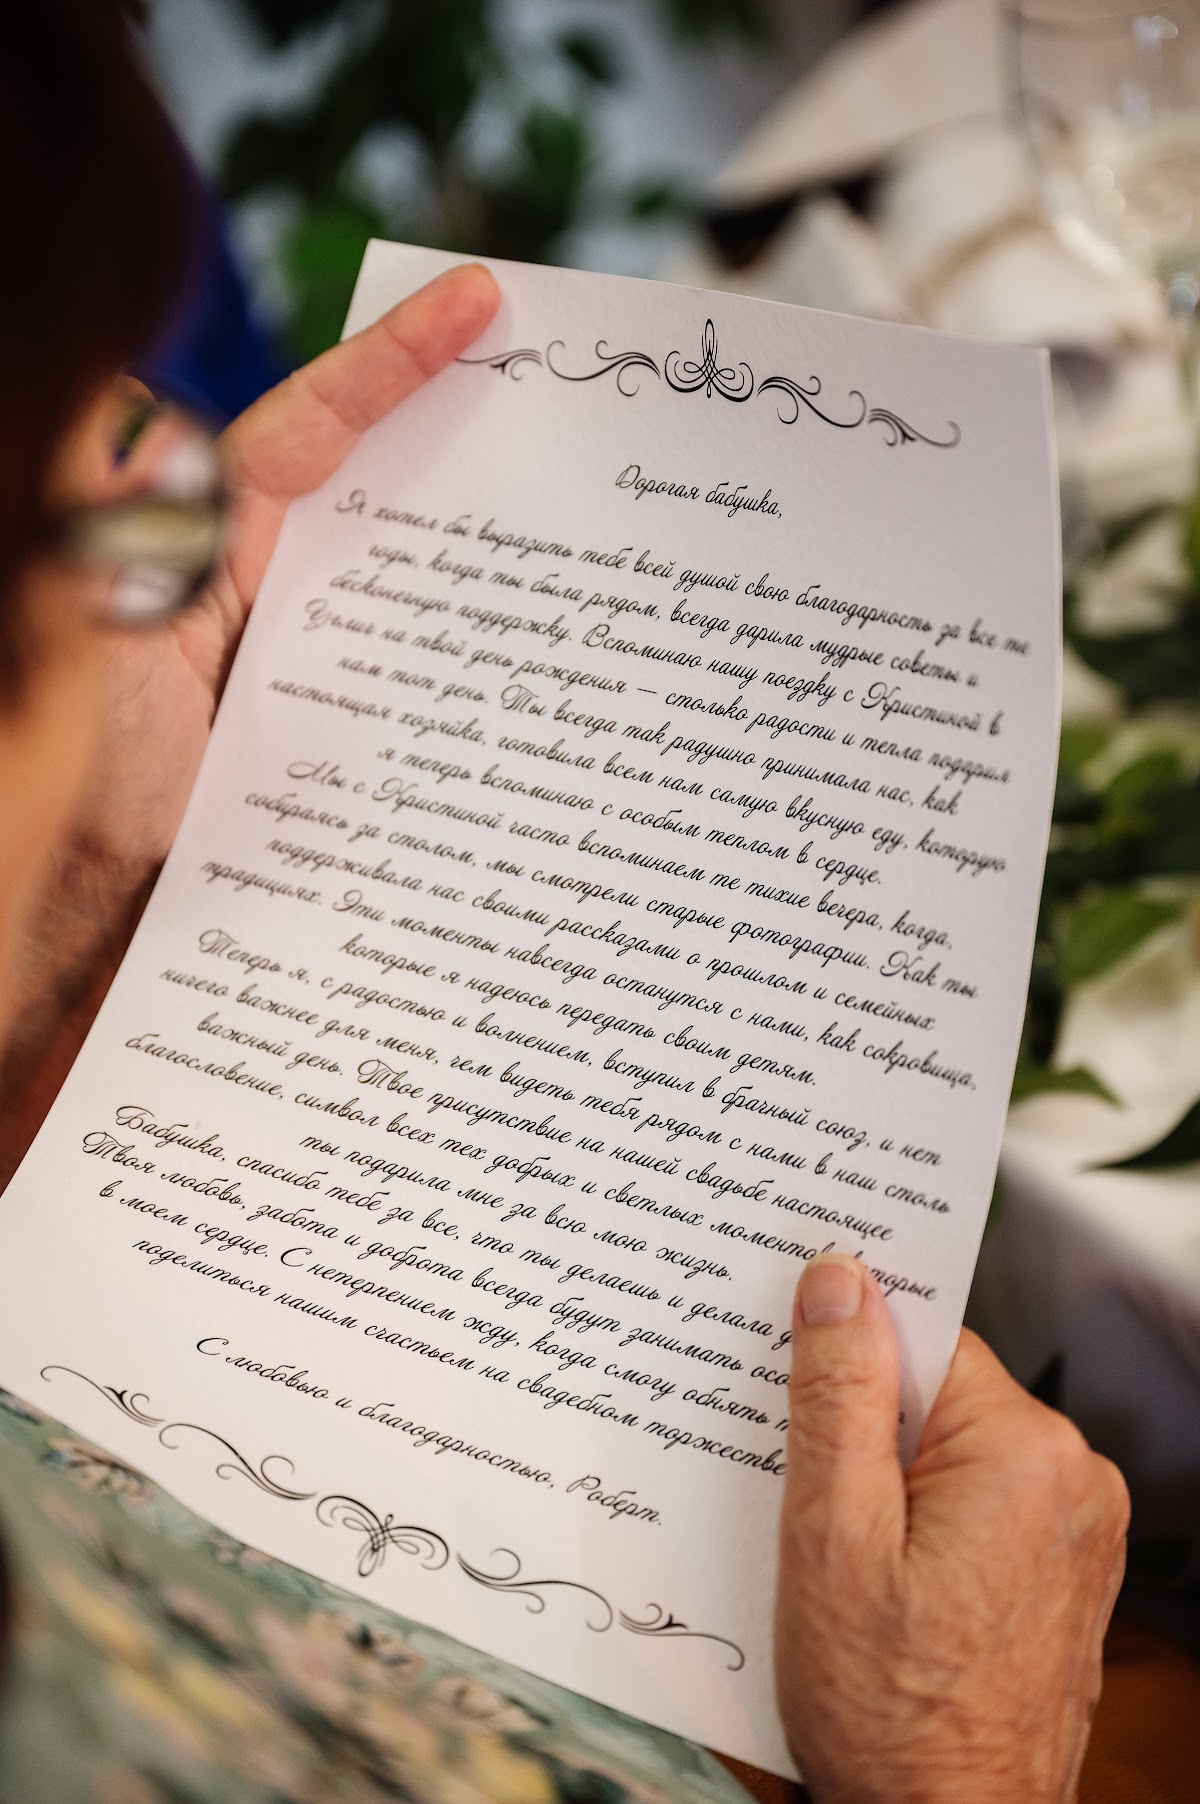 Дорогая бабушка,
Я хотел бы выразить тебе всей душой свою благодарность за все те
годы, когда ты была рядом, всегда дарила мудрые советы и
бесконечную поддержку. Вспоминаю нашу поездку с Кристиной в
Углич на твой день рождения — столько радости и тепла подарил
нам тот день. Ты всегда так радушно принимала нас, как
настоящая хозяйка, готовила всем нам самую вкусную еду, которую
я теперь вспоминаю с особым теплом в сердце.
Мы с Кристиной часто вспоминаем те тихие вечера, когда,
собираясь за столом, мы смотрели старые фотографии. Как ты
поддерживала нас своими рассказами о прошлом и семейных
традициях. Эти моменты навсегда останутся с нами, как сокровища,
которые я надеюсь передать своим детям.
Теперь я, с радостью и волнением, вступил в брачный союз, и нет
ничего важнее для меня, чем видеть тебя рядом с нами в наш столь
важный день. Твое присутствие на нашей свадьбе настоящее
благословение, символ всех тех добрых и светлых моментов, которые
ты подарила мне за всю мою жизнь.
Бабушка, спасибо тебе за все, что ты делаешь и делала
Твоя любовь, забота и доброта всегда будут занимать
в моем сердце. С нетерпением жду, когда смогу обнять
поделиться нашим счастьем на свадебном торжестве
С любовью и благодарностью, Роберт.